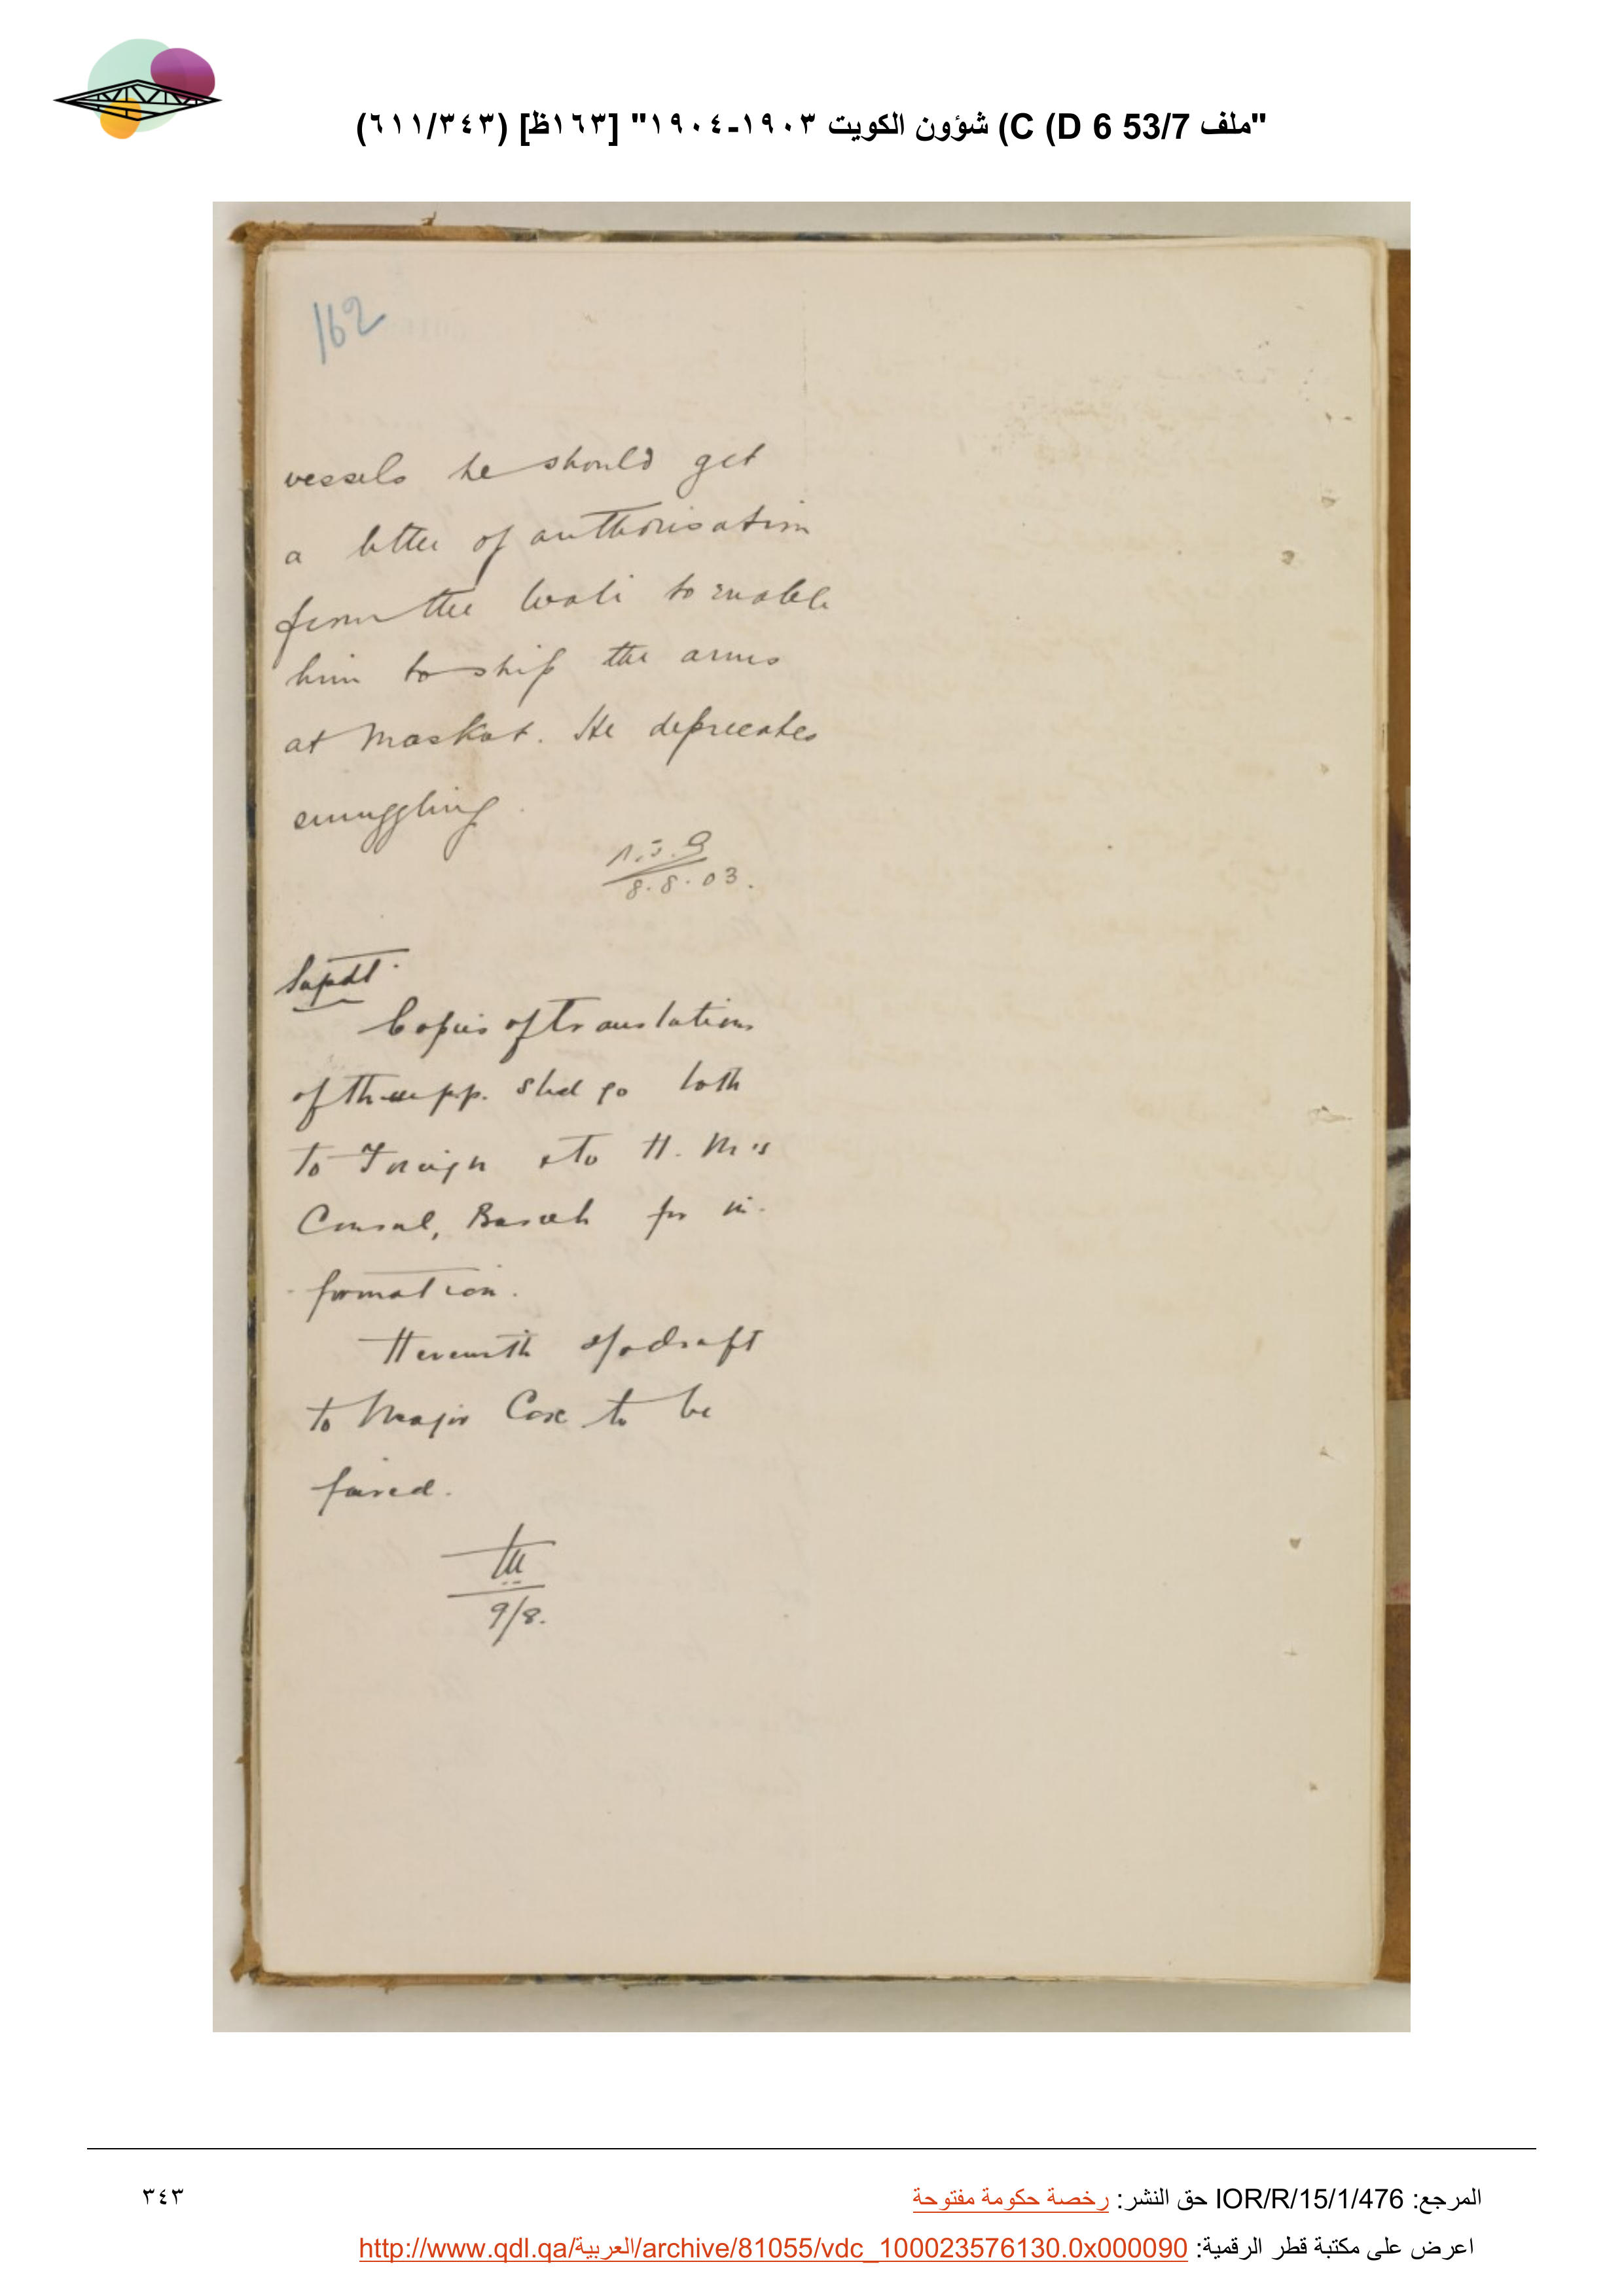 "ملف 53/7 D 6) C) شؤون الكويت ١٩٠٣-١٩٠٤" [١٦٣ظ] (٦١١/٣٤٣)
162
vessels he should get
a letter of authorisation
from the Wali to enable
him to ship the arms
at Maskat. He deprecates
smuggling.
8.8.03.
Supdt.
Copies of translations
of these pp. shd go both
to Foreign & to H. M's
Consul, Basrah for in-
formation.
Herewith draft
to Major Cox to be
faired.
9/8.
المرجع: IOR/R/15/1/476 حق النشر: رخصة حكومة مفتوحة
٣٤٣
اعرض على مكتبة قطر الرقمية: http://www.qdl.qa/العربية/archive/81055/vdc_100023576130.0x000090